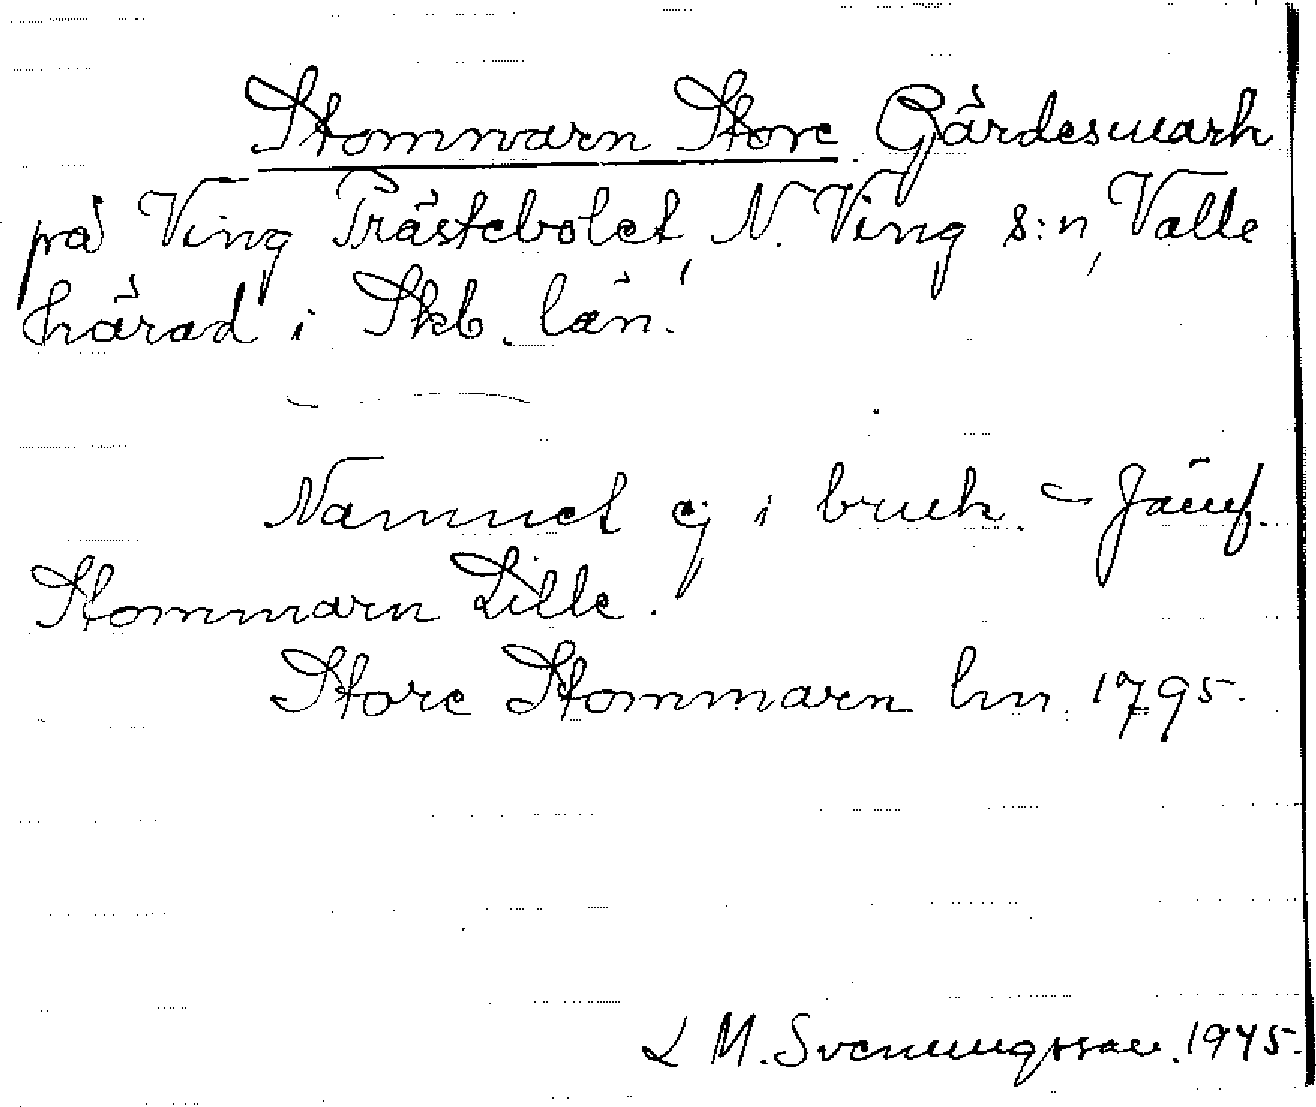 Stommarn Store Gärdesmark
på Ving Prästebolet, N. Ving s:n, Valle
härad i Skb. län.
Namnet ej i bruk. - Jämf.
Stommarn Lille.
Store Stommarn lm. 1795.
L M. Svenungsson. 1945.